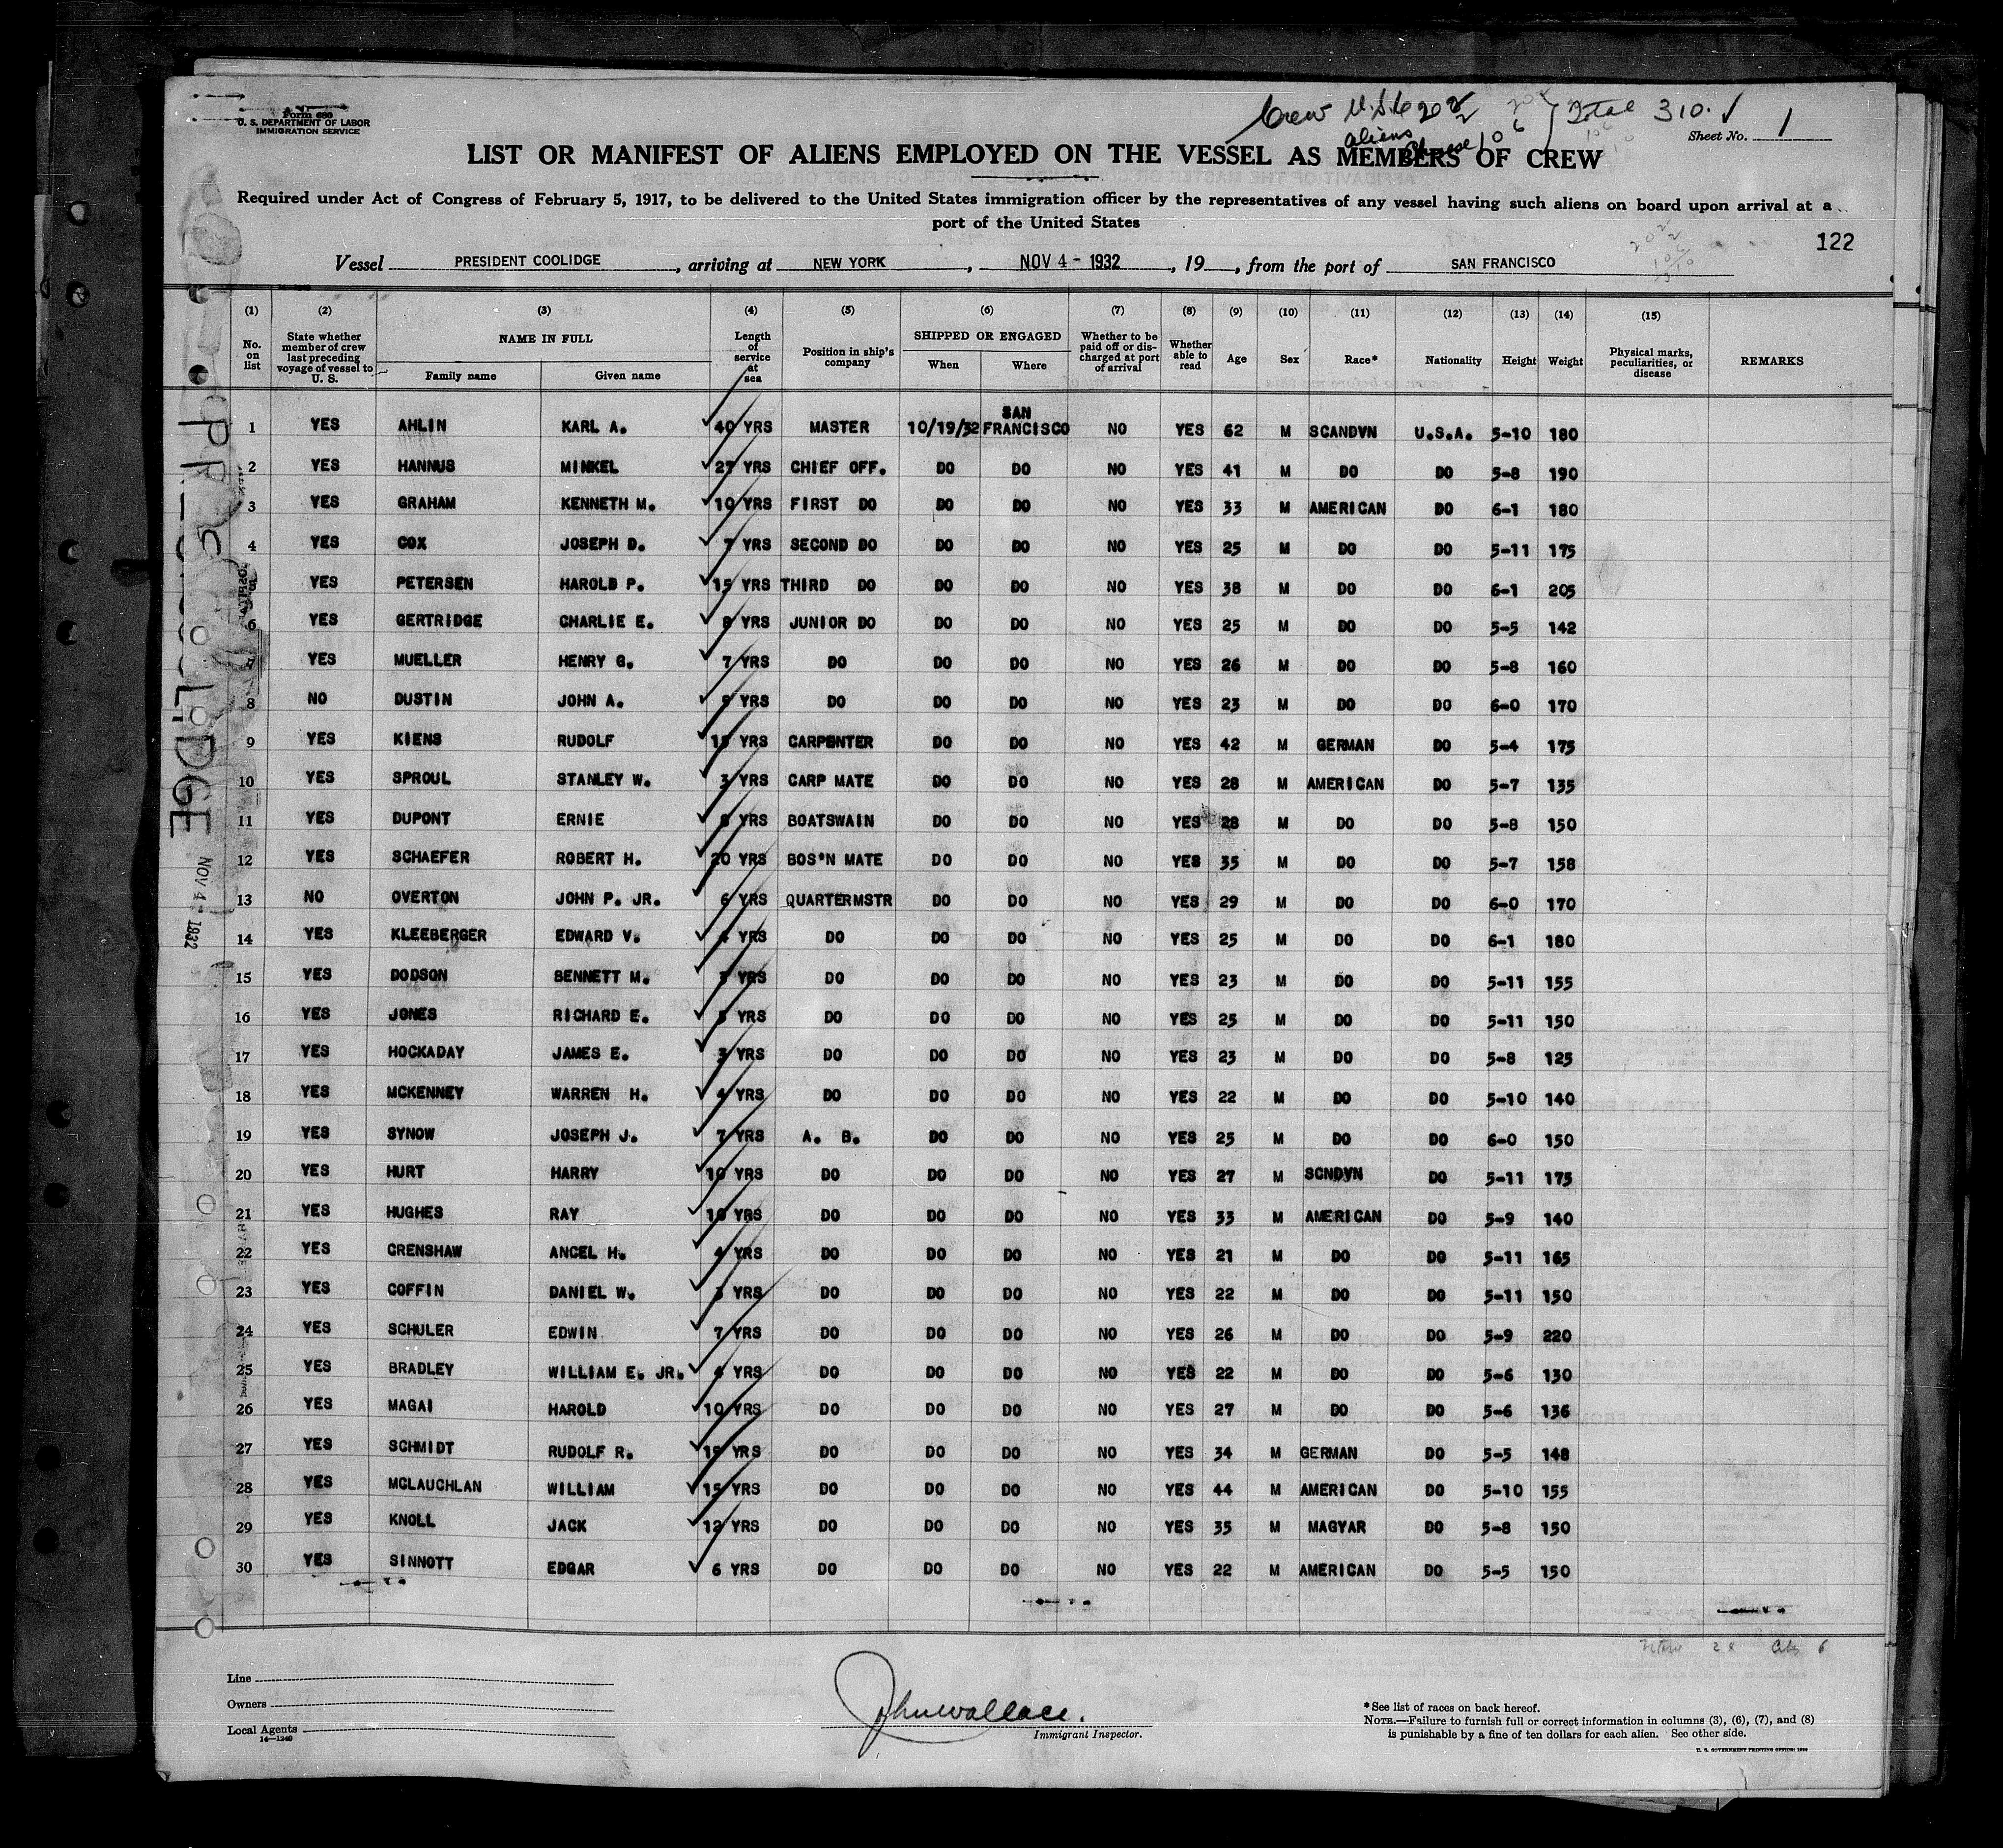 Form 680
U. S. DEPARTMENT OF LABOR
IMMIGRATION SERVICE
Crew U.S.C 202 Total 310. ✓
aliens 2
Chinese 106
Sheet No. 1
LIST OR MANIFEST OF ALIENS EMPLOYED ON THE VESSEL AS MEMBERS OF CREW
Required under Act of Congress of February 5, 1917, to be delivered to the United States immigration officer by the representatives of any vessel having such aliens on board upon arrival at a
port of the United States
122
Vessel PRESIDENT COOLIDGE, arriving at NEW YORK, NOV 4 - 1932, 19 , from the port of SAN FRANCISCO
(1) (2) (3) (4) (5) (6) (7) (8) (9) (10) (11) (12) (13) (14) (15)
No. on list State whether member of crew last preceding voyage of vessel to U. S. NAME IN FULL Family name Given name Length of service at sea Position in ship's company SHIPPED OR ENGAGED When Where Whether to be paid off or discharged at port of arrival Whether able to read Age Sex Race* Nationality Height Weight Physical marks, peculiarities, or disease REMARKS
1 YES AHLIN KARL A. 40 YRS MASTER 10/19/32 SAN FRANCISCO NO YES 62 M SCANDVN U.S.A. 5-10 180
2 YES HANNUS MINKEL 27 YRS CHIEF OFF. DO DO NO YES 41 M DO DO 5-8 190
3 YES GRAHAM KENNETH M. 10 YRS FIRST DO DO DO NO YES 33 M AMERICAN DO 6-1 180
4 YES COX JOSEPH D. 7 YRS SECOND DO DO DO NO YES 25 M DO DO 5-11 175
5 YES PETERSEN HAROLD P. 15 YRS THIRD DO DO DO NO YES 38 M DO DO 6-1 205
6 YES GERTRIDGE CHARLIE E. 8 YRS JUNIOR DO DO DO NO YES 25 M DO DO 5-5 142
7 YES MUELLER HENRY G. 7 YRS DO DO DO NO YES 26 M DO DO 5-8 160
8 NO DUSTIN JOHN A. YRS DO DO DO NO YES 23 M DO DO 6-0 170
9 YES KIENS RUDOLF YRS CARPENTER DO DO NO YES 42 M GERMAN DO 5-4 175
10 YES SPROUL STANLEY W. 3 YRS CARP MATE DO DO NO YES 28 M AMERICAN DO 5-7 135
11 YES DUPONT ERNIE YRS BOATSWAIN DO DO NO YES 28 M DO DO 5-8 150
12 YES SCHAEFER ROBERT H. 20 YRS BOS'N MATE DO DO NO YES 35 M DO DO 5-7 158
13 NO OVERTON JOHN P. JR. 6 YRS QUARTERMSTR DO DO NO YES 29 M DO DO 6-0 170
14 YES KLEEBERGER EDWARD V. 4 YRS DO DO DO NO YES 25 M DO DO 6-1 180
15 YES DODSON BENNETT M. YRS DO DO DO NO YES 23 M DO DO 5-11 155
16 YES JONES RICHARD E. YRS DO DO DO NO YES 25 M DO DO 5-11 150
17 YES HOCKADAY JAMES E. 3 YRS DO DO DO NO YES 23 M DO DO 5-8 125
18 YES MCKENNEY WARREN H. 4 YRS DO DO DO NO YES 22 M DO DO 5-10 140
19 YES SYNOW JOSEPH J. 7 YRS A. B. DO DO NO YES 25 M DO DO 6-0 150
20 YES HURT HARRY 10 YRS DO DO DO NO YES 27 M SCNDVN DO 5-11 175
21 YES HUGHES RAY YRS DO DO DO NO YES 33 M AMERICAN DO 5-9 140
22 YES CRENSHAW ANCEL H. 4 YRS DO DO DO NO YES 21 M DO DO 5-11 165
23 YES COFFIN DANIEL W. 3 YRS DO DO DO NO YES 22 M DO DO 5-11 150
24 YES SCHULER EDWIN 7 YRS DO DO DO NO YES 26 M DO DO 5-9 220
25 YES BRADLEY WILLIAM E. JR. YRS DO DO DO NO YES 22 M DO DO 5-6 130
26 YES MAGAI HAROLD 10 YRS DO DO DO NO YES 27 M DO DO 5-6 136
27 YES SCHMIDT RUDOLF R. YRS DO DO DO NO YES 34 M GERMAN DO 5-5 148
28 YES MCLAUCHLAN WILLIAM 15 YRS DO DO DO NO YES 44 M AMERICAN DO 5-10 155
29 YES KNOLL JACK 12 YRS DO DO DO NO YES 35 M MAGYAR DO 5-8 150
30 YES SINNOTT EDGAR 6 YRS DO DO DO NO YES 22 M AMERICAN DO 5-5 150
NOV 4 - 1932
Line
Owners
Local Agents
14—1240
John Wallace.
Immigrant Inspector.
*See list of races on back hereof.
NOTE.—Failure to furnish full or correct information in columns (3), (6), (7), and (8)
is punishable by a fine of ten dollars for each alien. See other side.
U. S. GOVERNMENT PRINTING OFFICE: 1930